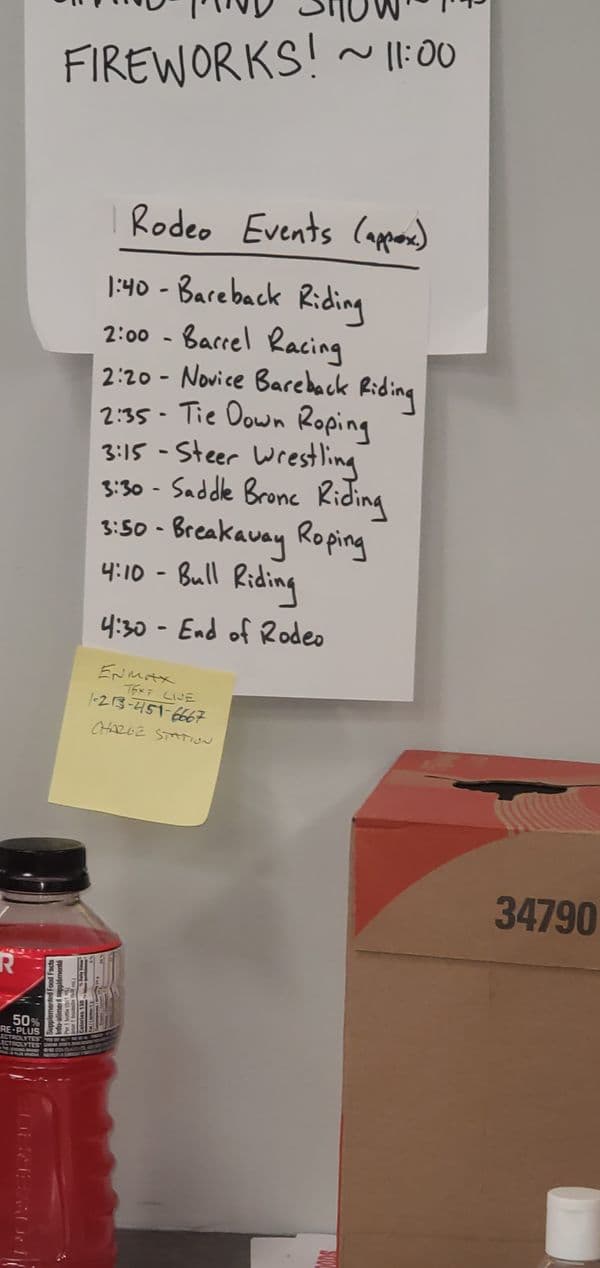 SHOW ~
FIREWORKS! ~ 11:00
Rodeo Events (approx.)
1:40 - Bareback Riding
2:00 - Barrel Racing
2:20 - Novice Bareback Riding
2:35 - Tie Down Roping
3:15 - Steer Wrestling
3:30 - Saddle Bronc Riding
3:50 - Breakaway Roping
4:10 - Bull Riding
4:30 - End of Rodeo
ENMAX
TEXT LINE
1-213-451-6667
CHARGE STATION
34790
R
50%
RE-PLUS
ELECTROLYTES
Supplemented Food Facts